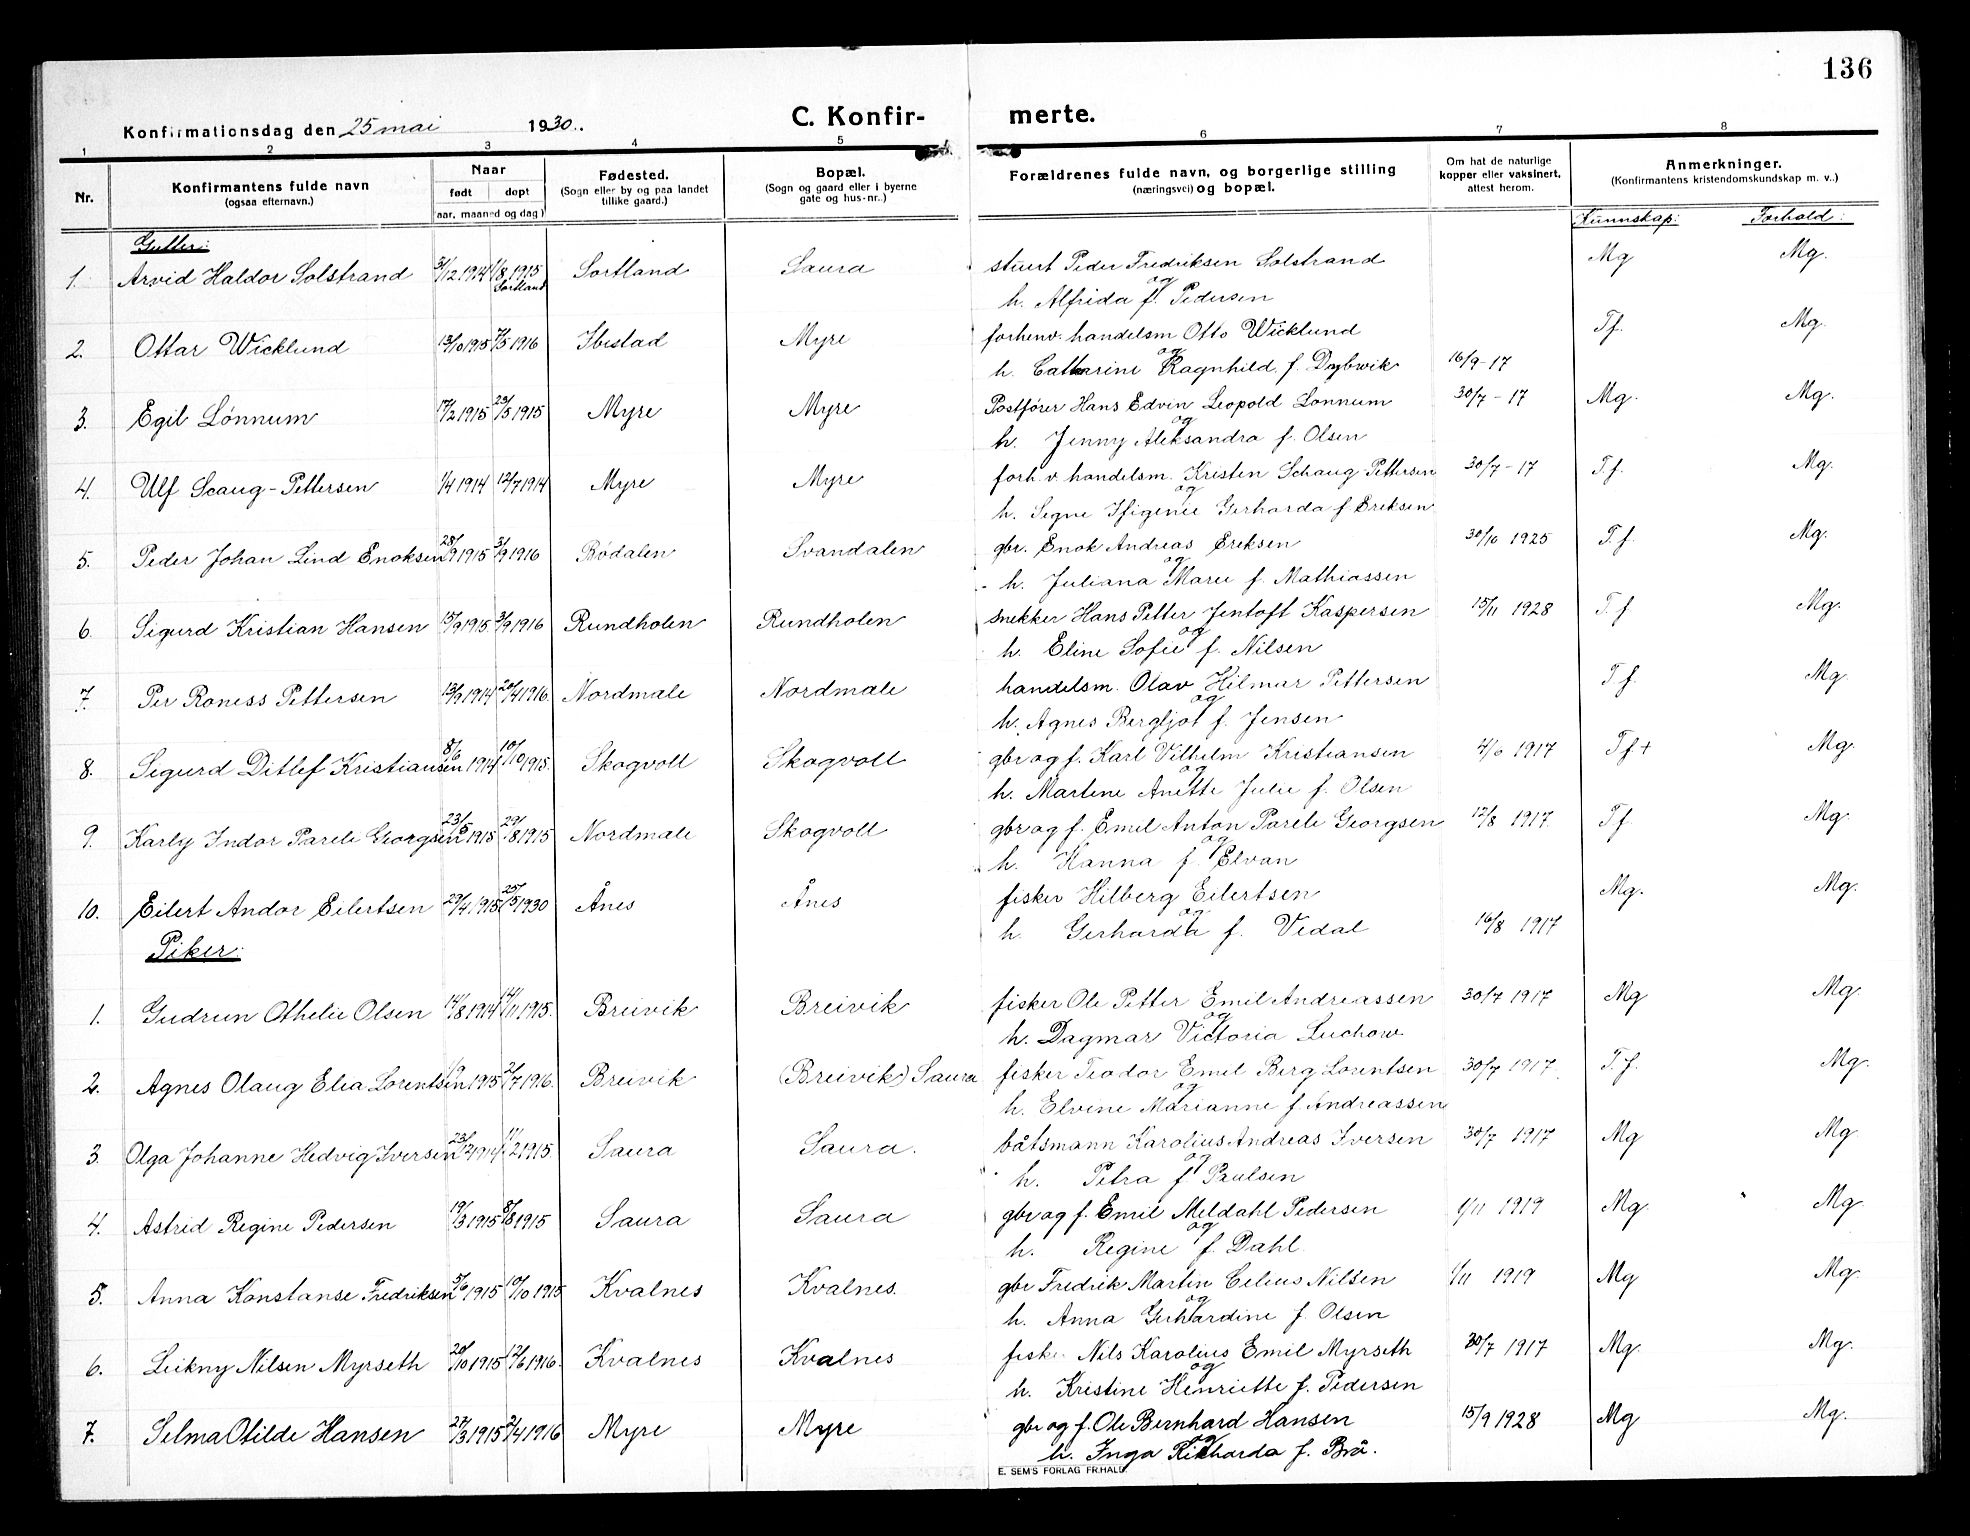 136
Konfirmationsdag den 25 mai 1930. C. Konfir- merte.
1 2 3 4 5 6 7 8
Nr. Konfirmantens fulde navn (ogsaa efternavn.) Naar født døpt (aar, maaned og dag) Fødested. (Sogn eller by og paa landet tillike gaard.) Bopæl. (Sogn og gaard eller i byerne gate og hus-nr.) Forældrenes fulde navn, og borgerlige stilling (næringsvei) og bopæl. Om hat de naturlige kopper eller vaksinert, attest herom. Anmerkninger. (Konfirmantens kristendomskundskap m. v.)
Kunnskap: Forhold:
Gutter:
1. Arvid Haldor Solstrand 31/12 1914 1/8 1915 Sortland Sortland Saura stuert Peder Fredriksen Solstrand Mg Mg.
og
h. Alfrida f. Pedersen
2. Ottar Wicklund 13/10 1915 7/5 1916 Ibestad Myre forhenv. handelsm Otto Wicklund Tf. Mg.
og
h. Catharine Ragnhild f. Dybwik 16/9-17
3. Egil Lönnum 17/2 1915 23/5 1915 Myre Myre Postfører Hans Edvin Leopold Lonnum 30/7-17 Mg. Mg.
og
h. Jenny Aleksandra f. Olsen
4. Ulf Scaug-Pettersen 1/4 1914 12/7 1914 Myre Myre forh.v. handelsm. Kristen Schaug-Pettersen 30/7-17 Tf. Mg.
og
h. Segne Ifigenie Gerharda f. Ereksen
5. Peder Johan Lind Enoksen 28/9 1915 3/9 1916 Bødalen Svandalen gbr. Enok Andreas Ereksen 30/10 1925 T.f. Mg.
og
h. Juliana Marie f. Mathiassen
6. Sigurd Kristian Hansen 15/9 1915 3/9 1916 Rundholen Rundholen snekker Hans Petter Jentoft Kaspersen 15/11 1928 T.f Mg.
og
h. Eline Sofie f. Nilsen
7. Per Roness Pettersen 13/9 1914 20/4 1916. Nordmale Nordmale handelsm. Olav Hilmar Pettersen T f. Mg.
og
h. Agnes Bergljot f. Jensen
8. Sigurd Ditlef Kristiansen 8/6 1914 10/10 1915. Skogvoll Skogvoll gbr og f. Karl Vilhelm Kristiansen 1917 Tf+ Mg.
og
h. Martene Anette Julie f. Olsen
9. Karly Indor Parele Georgsen 23/5 1915 29/8 1915 Nordmale Skogvoll gbr og f. Emil Anton Parele Georgsen 17/8 1917 Tf Mg.
og
h. Hanna f. Elvan
10. Eilert Andor Eilertsen 29/4 1915 25/5 1930 Ånes Ånes fisker Hilberg Eilertsen Mg. Mg.
og
h. Gerharda f. Vedal 16/8 1917
Piker:
1. Gudrun Othelie Olsen 14/8 1914 14/11 1915. Breivik Breivik fisker Ole Petter Emil Andreassen 30/7 1917 Mg Mg.
og
h. Dagmar Victoria Luchow
2. Agnes Olaug Elia Lorentsen 1915 2/7 1916. Breivik (Breivik) Saura fisker Teodor Emil Berg Lorentsen 30/7 1917 T.f. Mg.
og
h. Elvine Marianne f. Andreassen
3. Olga Johanne Hedvig Iversen 23/12 1914 11/2 1915 Saura Saura. båtsmann Karolius Andreas Iversen 30/7 1917 Mg Mg
og
h. Petra f Paulsen
4. Astrid Regine Pedersen 19/3 1915 8/8 1915 Saura Saura gbr og f. Emil Meldahl Pedersen 1/11 1919 Mg. Mg.
og
h. Regine f. Dahl.
5. Anna Konstanse Fredriksen 5/6 1915 10/10 1915 Kvalnes Kvalnes. gbr Fredrik Martin Celius Nilsen 1/11 1919 Mg Mg.
og
h. Anna Gerhardine f. Olsen
6. Leikny Nilsen Myrseth 20/10 1915 12/6 1916. Kvalnes Kvalnes fisker Nils Karolius Emil Myrseth 30/7 1917 Mg. Mg.
og
h. Kristine Henriette f. Pedersen
7. Selma Otilde Hansen 27/3 1915 2/4 1916 Myre Myre gbr og f. Ole Bernhard Hansen 15/9 1928 Mg Mg.
og
h. Inga Rikharda f. Brå.
E. SEM'S FORLAG FR.HALD.